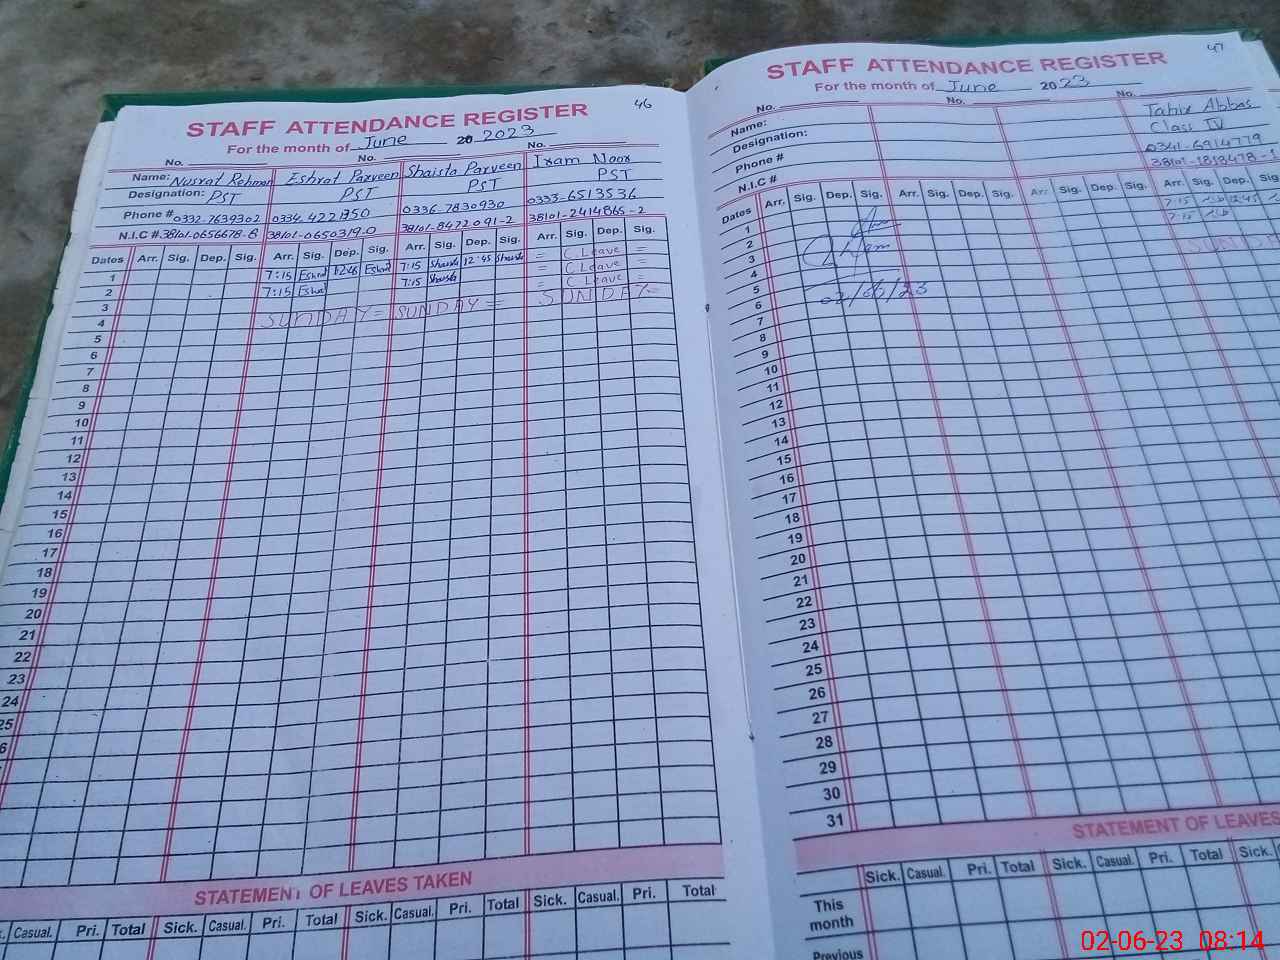 46
STAFF ATTENDANCE REGISTER
For the month of June 20 2023
No. No. No.
Name: Nusrat Rehman Eshrat Parveen Shaista Parveen Iram Noor
Designation: PST PST PST PST
Phone # 0332-7639302 0334-4221350 0336-7830930 0333-6513536
N.I.C #. 38101-0656678-8 38101-0650319-0 38101-8472091-2 38101-2414865-2
Dates Arr. Sig. Dep. Sig. Arr. Sig. Dep. Sig. Arr. Sig. Dep. Sig. Arr. Sig. Dep. Sig.
1 7:15 Eshrat 12:45 Eshrat 7:15 Shaista 12:45 Shaista = C.Leave =
2 7:15 Eshrat 7:15 Shaista = C.Leave =
3 = C Leave =
4 SUNDAY = SUNDAY = SUNDAY =
5
6
7
8
9
10
11
12
13
14
15
16
17
18
19
20
21
22
23
24
25
6
STATEMENT OF LEAVES TAKEN
Casual. Pri. Total Sick. Casual. Pri. Total Sick. Casual. Pri. Total Sick. Casual. Pri. Total
47
STAFF ATTENDANCE REGISTER
For the month of June 2023
No. No. No.
Name: Tahir Abbas
Designation: Class IV
Phone # 0341-6914779
N.I.C # 38101-1813478-1
Dates Arr. Sig. Dep. Sig. Arr. Sig. Dep. Sig. Arr. Sig. Dep. Sig. Arr. Sig. Dep. Sig
1 7:15 12:45
2 7:15
3
4 SUNDA
5
02/06/23
6
7
8
9
10
11
12
13
14
15
16
17
18
19
20
21
22
23
24
25
26
27
28
29
30
31
STATEMENT OF LEAVES
Sick. Casual. Pri. Total Sick. Casual. Pri. Total Sick.
This month
Previous
02-06-23 08:14